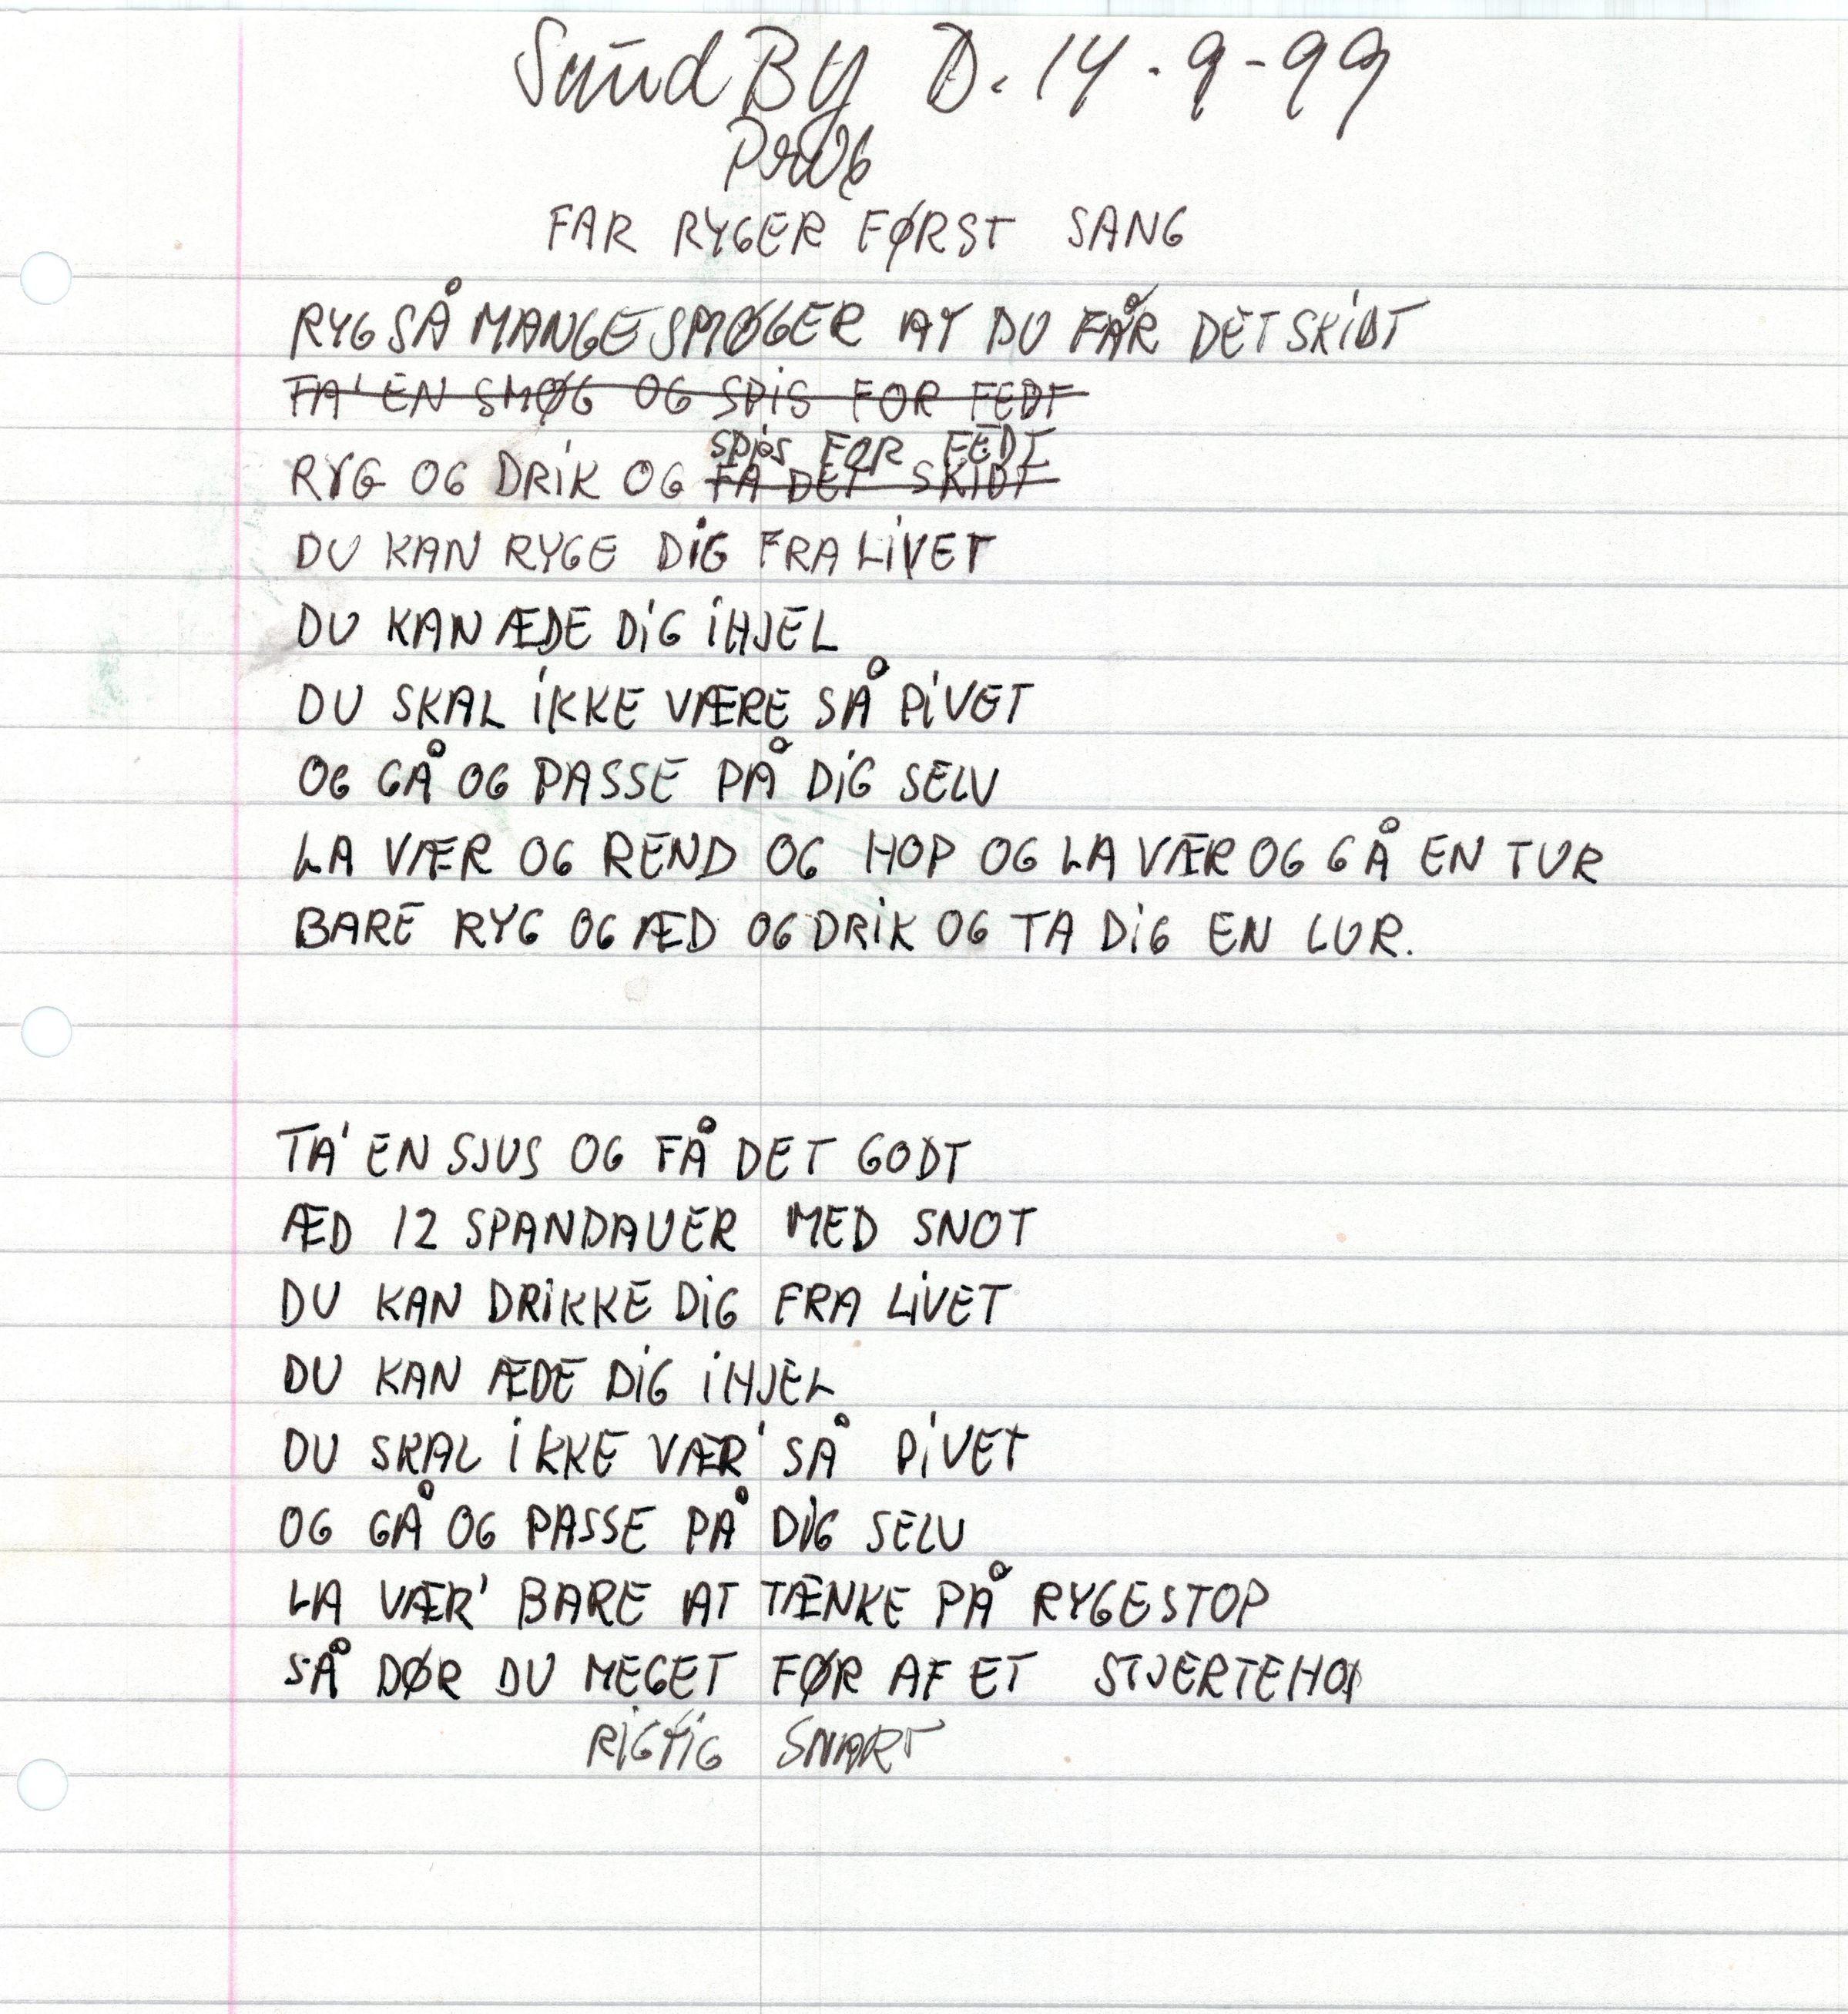 SundBy D. 14.9-99
PRØB
FAR RYGER FØRST SANG
RYG SÅ MANGE SMØGER AT DU FÅR DET SKIDT
TA' EN SMØG OG SPIS FOR FEDT
SPIS FOR FEDT
RYG OG DRIK OG FÅ DET SKIDT
DU KAN RYGE DIG FRA LIVET
DU KAN ÆDE DIG IHJEL
DU SKAL IKKE VÆRE SÅ PIVET
OG GÅ OG PASSE PÅ DIG SELV
LA VÆR OG REND OG HOP OG LA VÆR OG GÅ EN TUR
BARE RYG OG ÆD OG DRIK OG TA DIG EN LUR.
TA' EN SJUS OG FÅ DET GODT
ÆD 12 SPANDAUER MED SNOT
DU KAN DRIKKE DIG FRA LIVET
DU KAN ÆDE DIG IHJEL
DU SKAL IKKE VÆR' SÅ PIVET
OG GÅ OG PASSE PÅ DIG SELV
LA VÆR' BARE AT TÆNKE PÅ RYGESTOP
SÅ DØR DU MEGET FØR AF ET STJERTEHOP
RIGTIG SNART